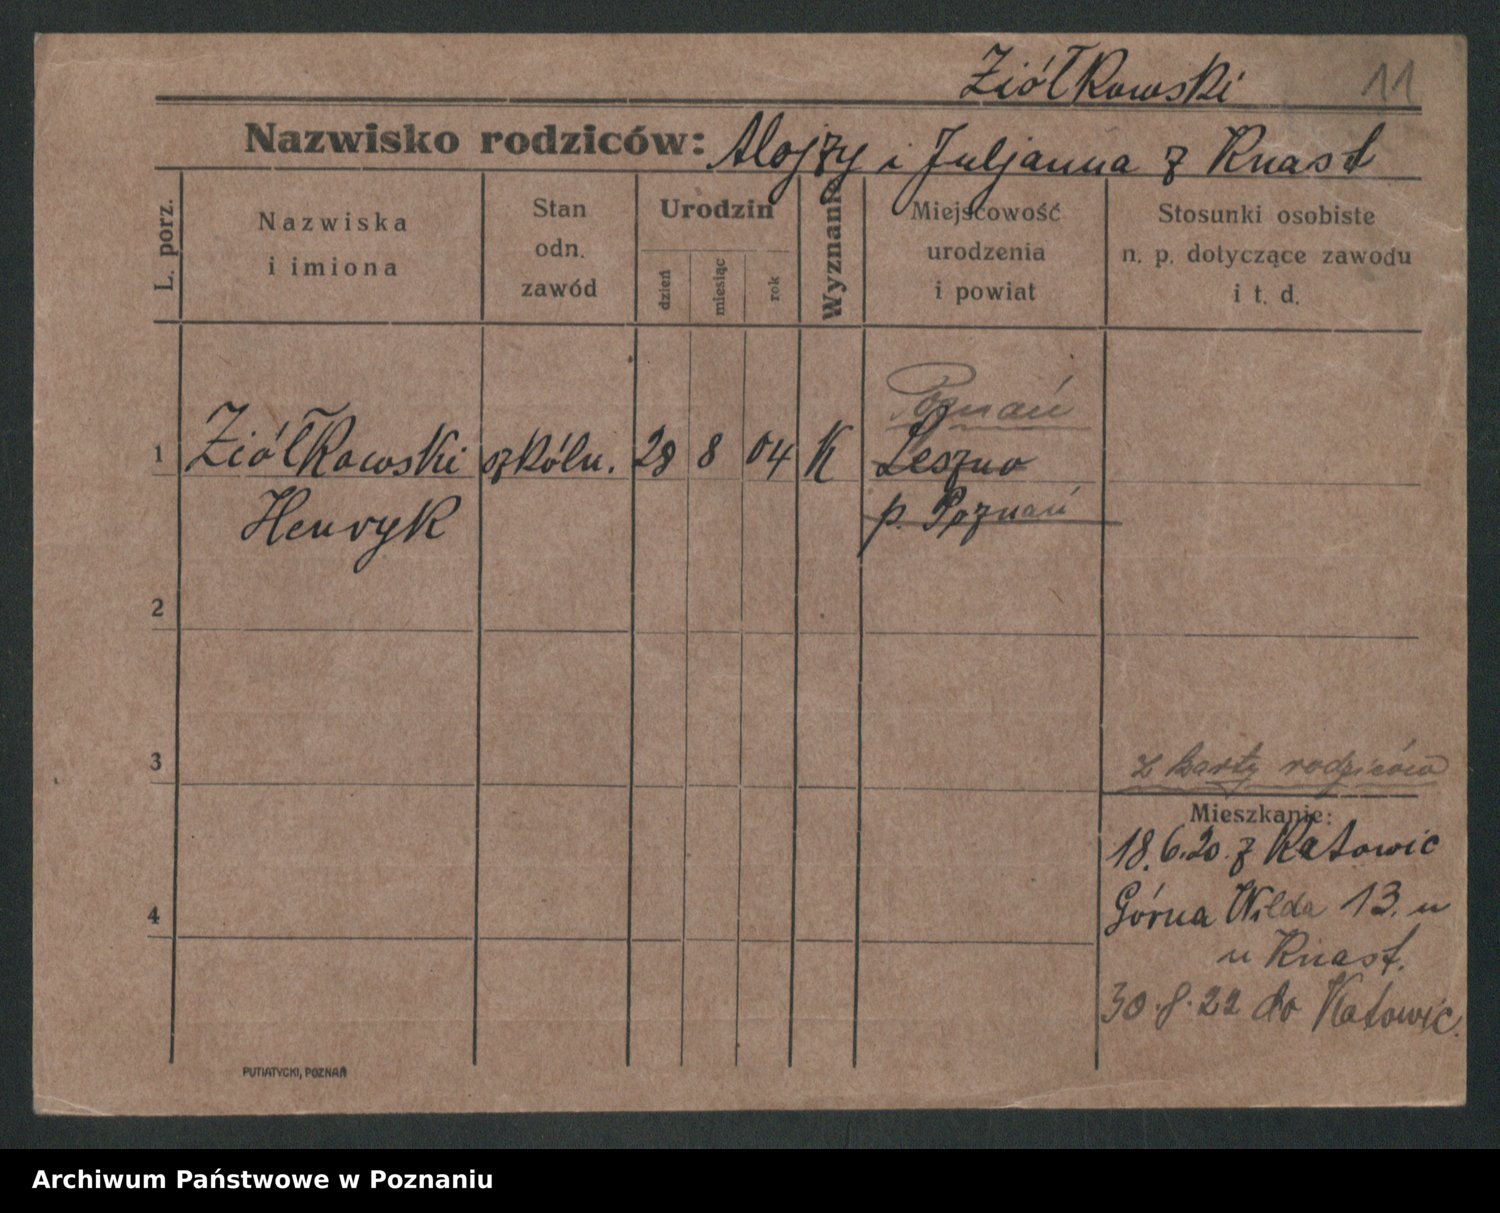 Ziółkowski 11
Nazwisko rodziców: Alojzy i Juljanna z Knast
L. porz.
Nazwiska
i imiona
Stan
odn.
zawód
Urodzin
dzień
miesiąc
rok
Wyznanie
Miejscowość
urodzenia
i powiat
Stosunki osobiste
n. p. dotyczące zawodu
i t. d.
Poznań
1 Ziółkowski szkóln. 28 8 04 K Leszno
Henryk p. Poznań
2
3
z karty rodziców
Mieszkanie:
18.6.20. z Katowic
4
Górna Wilda 13. u
u Knast.
30.8.22 do Katowic.
PUTIATYCKI, POZNAŃ
Archiwum Państwowe w Poznaniu